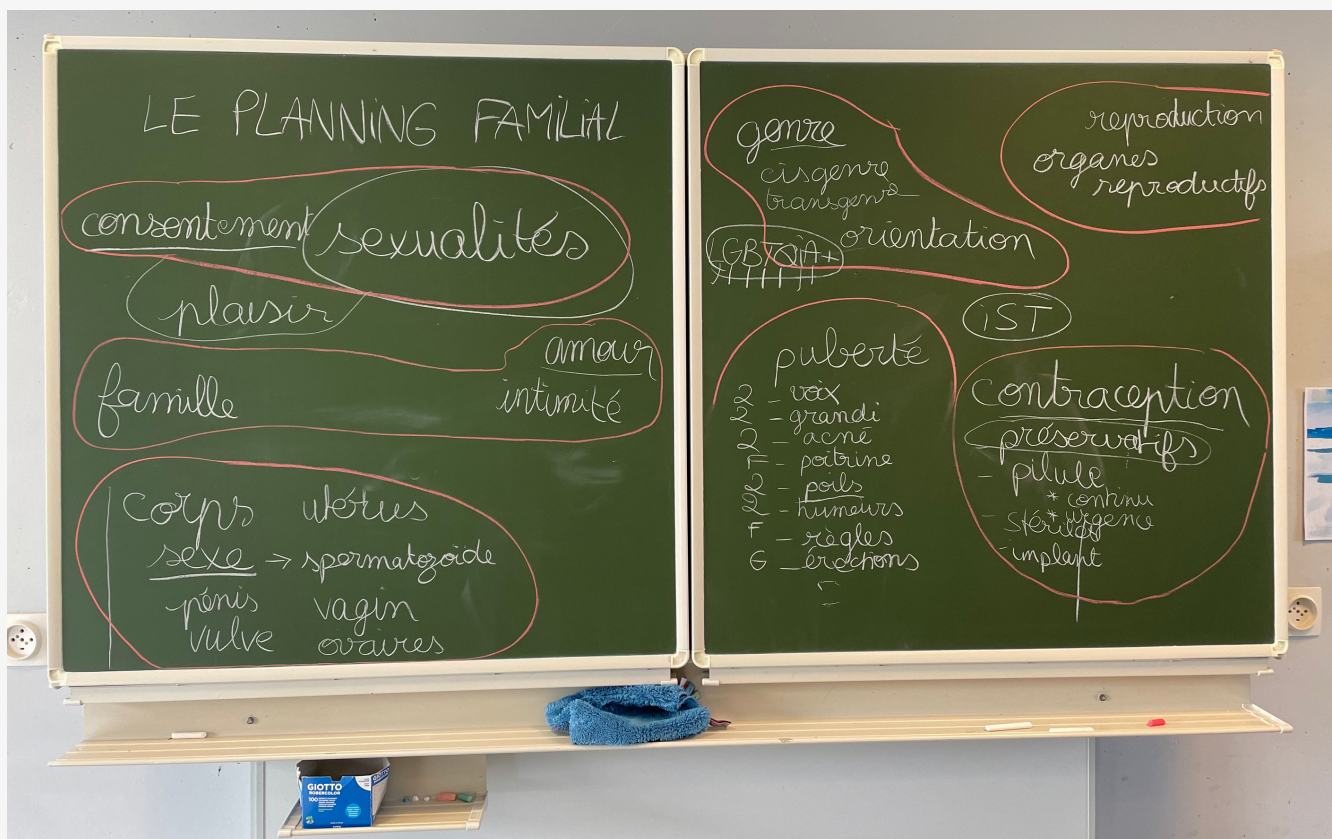 LE PLANNiNG FAMiLiAL
consentement
sexualités
plaisir
amour
famille
intimité
corps utérus
sexe → spermatozoïde
pénis vagin
vulve ovaires
genre
cisgenre
transgenre
orientation
LGBTQiA+
reproduction
organes
reproductifs
iST
puberté
2 - voix
2 - grandi
2 - acné
F - poitrine
2 - poils
2 - humeurs
F - règles
G - érections
contraception
préservatifs
- pilule
* continu
* urgence
- implant
GIOTTO
ROBERCOLOR
100